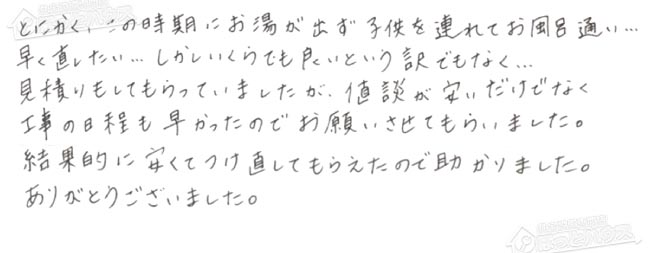 とにかく、この時期にお湯が出ず子供を連れてお風呂通い…
早く直したい…しかしいくらでも良いという訳でもなく…
見積りもしてもらっていましたが、値談が安いだけでなく
工事の日程も早かったのでお願いさせてもらいました。
結果的に安くてつけ直してもらえたので助かりました。
ありがとうございました。